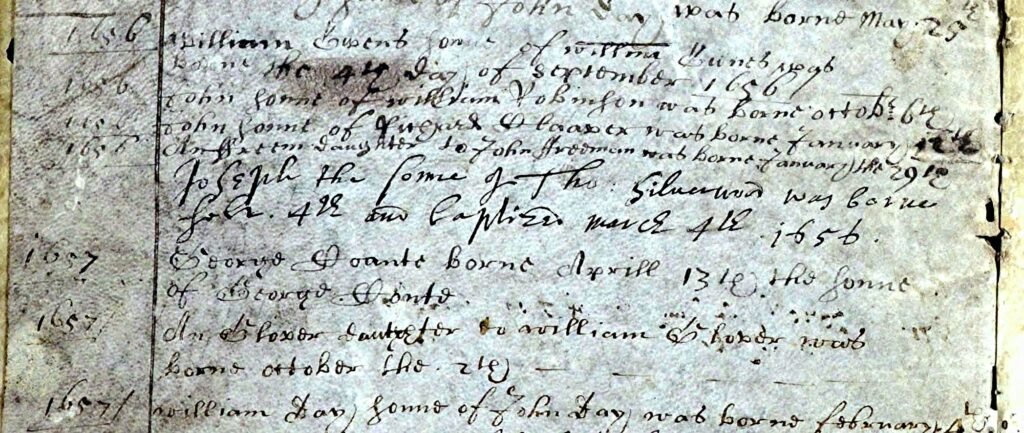 of John Day was borne May 25
1656 William Ewens sonne of william Eunes was
borne the 4th day of September 1656
1656 John sonne of william Robinson was borne octobr 6th
1656 John sonne of Richard was borne January
1656 An ffreem daughter to John ffreeman was borne January the 29th
Joseph the sonne of Tho: Silverwood was borne
febr. 4th and baptized march 4th . 1656 .
1657 George Doante borne Aprill 13th the sonne
of George Donte
1657 An Glover daughter to william Glover was
borne october the 2th
1657 william Day sonne of John Day was borne february 4